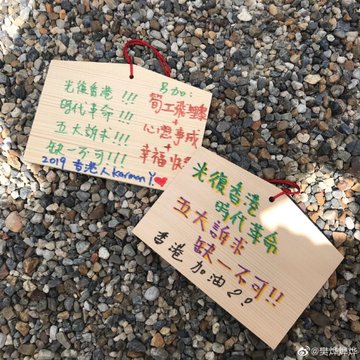 光復香港!!!
時代革命!!!
五大訴求!!!
缺一不可!!!
2019 香港人Karman Y.
另加:
筍工飛
+
心想事成
+
幸福快樂
光復香港
時代革命
五大訴求
缺一不可!!
香港加油!!
@樊烨烨烨